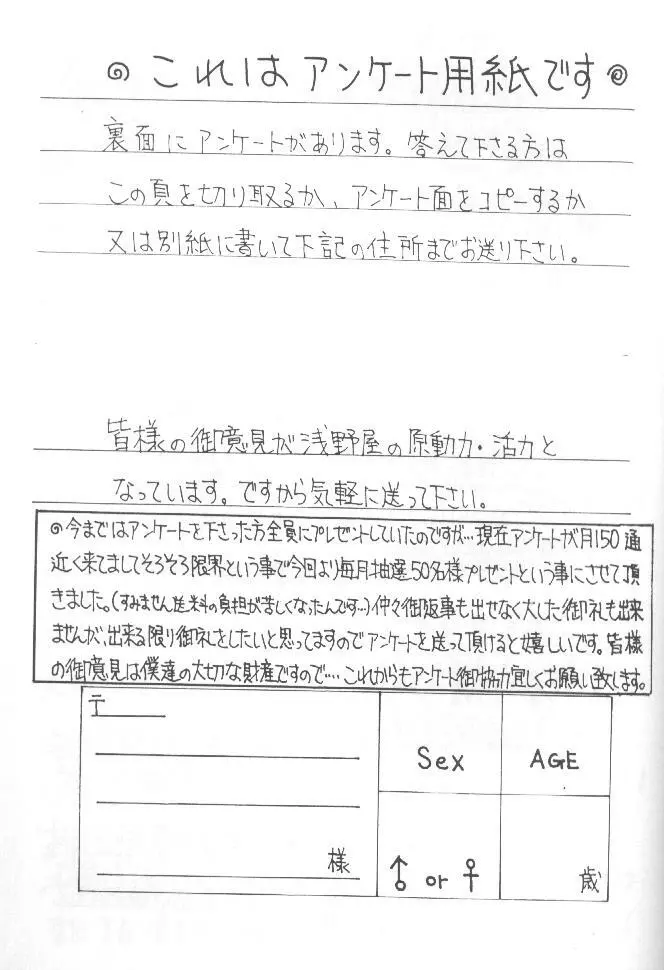 これはアンケート用紙です
裏面にアンケートがあります。答えて下さる方は
この頁を切り取るか、アンケート面をコピーするか
又は別紙に書いて下記の住所までお送り下さい。
皆様の御意見が浅野屋の原動力・活力と
なっています。ですから気軽に送って下さい。
◎今まではアンケートを下さった方全員にプレゼントしていたのですが…現在アンケートが月150通
近く来てましてそろそろ限界という事で今回より毎月抽選50名様プレゼントという事にさせて頂
きました。(すみません送料の負担が苦しくなったんです…)仲々御返事も出せなく大した御礼も出来
ませんが、出来る限り御礼をしたいと思ってますのでアンケートを送って頂けると嬉しいです。皆様
の御意見は僕達の大切な財産ですので…これからもアンケート御協力宜しくお願い致します。
〒
Sex
AGE
様
♂ or ♀
歳